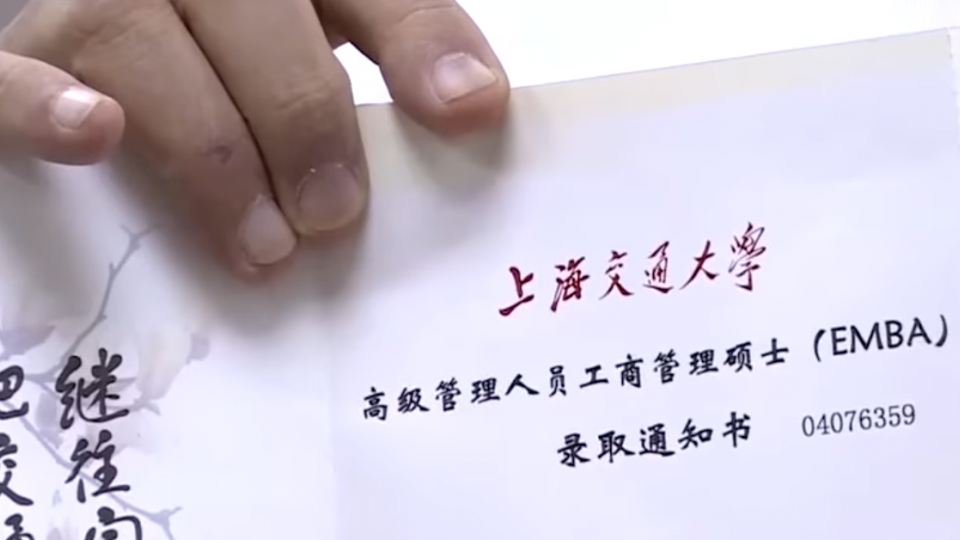 上海交通大學
高级管理人员工商管理硕士（EMBA）
录取通知书 04076359
继往